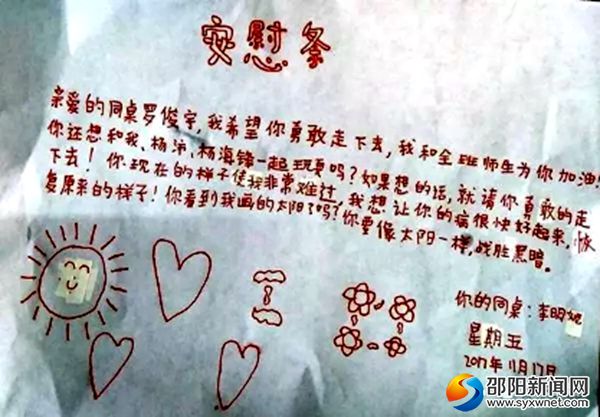 安慰条
亲爱的同桌罗俊宇,我希望你勇敢走下去,我和全班师生为你加油!
你还想和我、杨沛、杨海锋一起玩更吗?如果想的话,就请你勇敢的走
下去!你现在的样子使我非常难过,我想让你的病很快好起来,恢
复原来的样子!你看到我画的太阳了吗?你要像太阳一样,战胜黑暗。
你的同桌:李明妮
星期五
2017年11月17日
邵阳新闻网
www.syxwnet.com